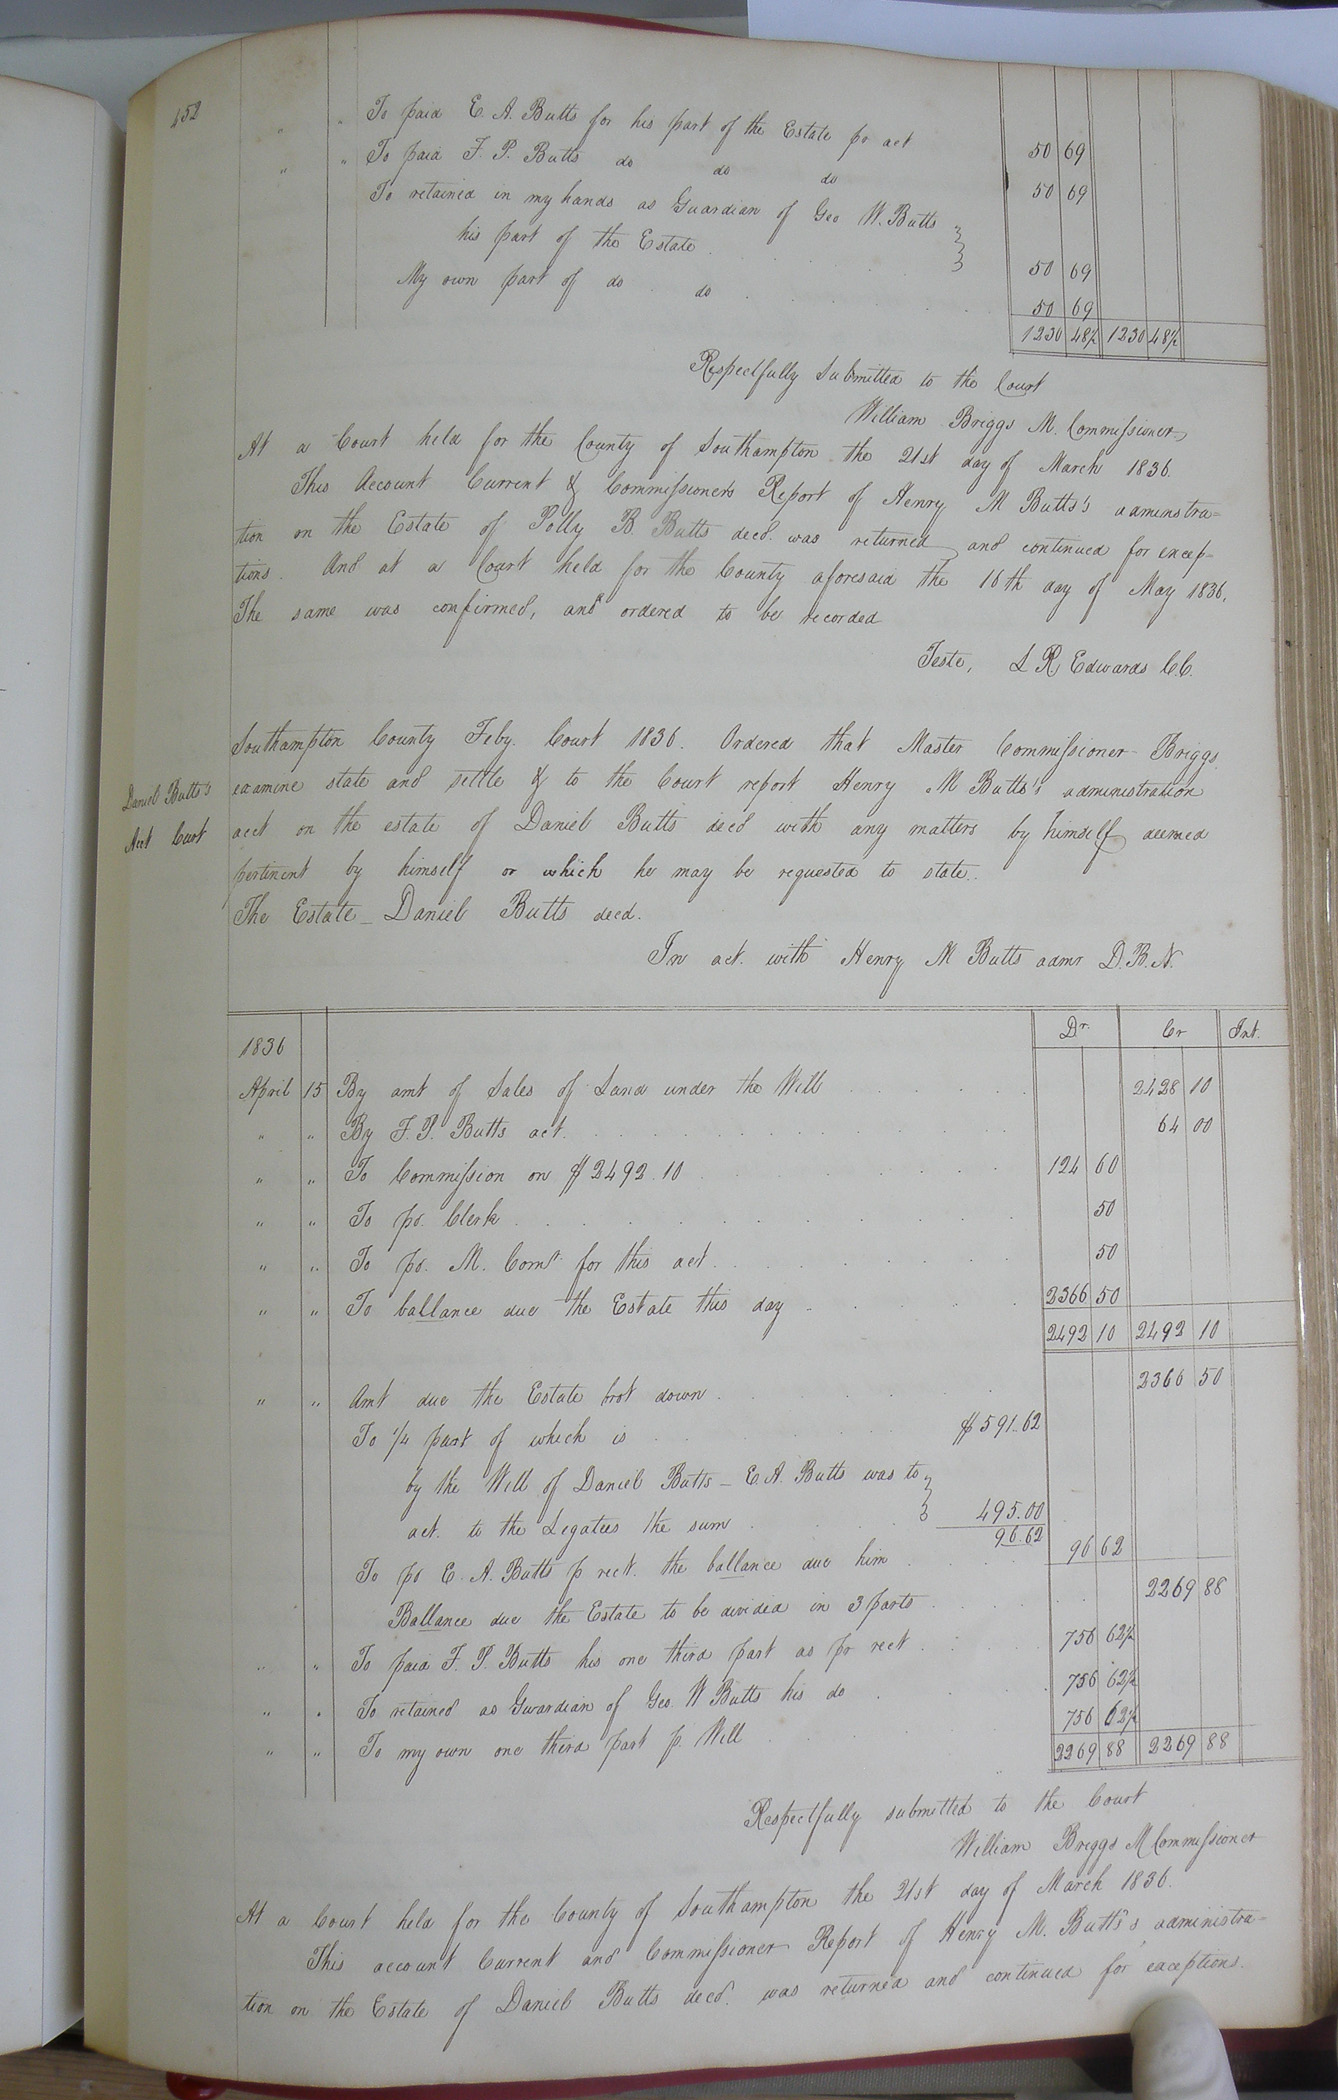 152
" " To paid E. A. Butts for his part of the Estate pr act 50 69
" " To paid F. P. Butts do do do 50 69
To retained in my hands as Guardian of Geo W. Butts
his part of the Estate 50 69
My own part of do do 50 69
1230 48½ 1230 48½
Respectfully Submitted to the Court
William Briggs M. Commissioner
At a Court held for the County of Southampton the 21st day of March 1836.
This Account Current & Commissioners Report of Henry M Butts's adminstra=
tion on the Estate of Polly B. Butts decd. was returned and continued for excep=
tions. And at a Court held for the County aforesaid the 16th day of May 1836,
The same was confirmed, and ordered to be recorded
Teste, L R Edwards C.C.
Southampton County Feby. Court 1836. Ordered that Master Commissioner Briggs
Daniel Butts's
examine state and settle & to the Court report Henry M Butts's administration
Acct Curt
acct on the estate of Daniel Butts decd with any matters by himself deemed
pertinent by himself or which he may be requested to state.
The Estate Daniel Butts decd.
In act. with Henry M Butts admr D.B.N.
Dr. Cr Int.
1836
April 15 By amt of Sales of Land under the Will 2428 10
" " By F. P. Butts act. 64 00
" " To Commission on $2492.10 124 60
" " To pd. Clerk 50
" " To pd. M. Comr. for this act. 50
" " To ballance due the Estate this day 2366 50
2492 10 2492 10
" " Amt due the Estate brot down 2366 50
To 1/4 part of which is $591.62
by the Will of Daniel Butts – E. A. Butts was to
act. to the Legatees the sum 495.00
96.62
To pd E. A. Butts p rect. the ballance due him 96 62
Ballance due the Estate to be divided in 3 parts 2269 88
" " To paid F. P. Butts his one third part as pr rect 756 62½
" " To retained as Guardian of Geo. W Butts his do 756 62½
" " To my own one third part p. Will 756 62½
2269 88 2269 88
Respectfully submitted to the Court
William Briggs M Commissioner
At a Court held for the County of Southampton the 21st day of March 1836.
This account Current and Commissioner Report of Henry M. Butts's administra=
tion on the Estate of Daniel Butts decd. was returned and continued for exceptions.